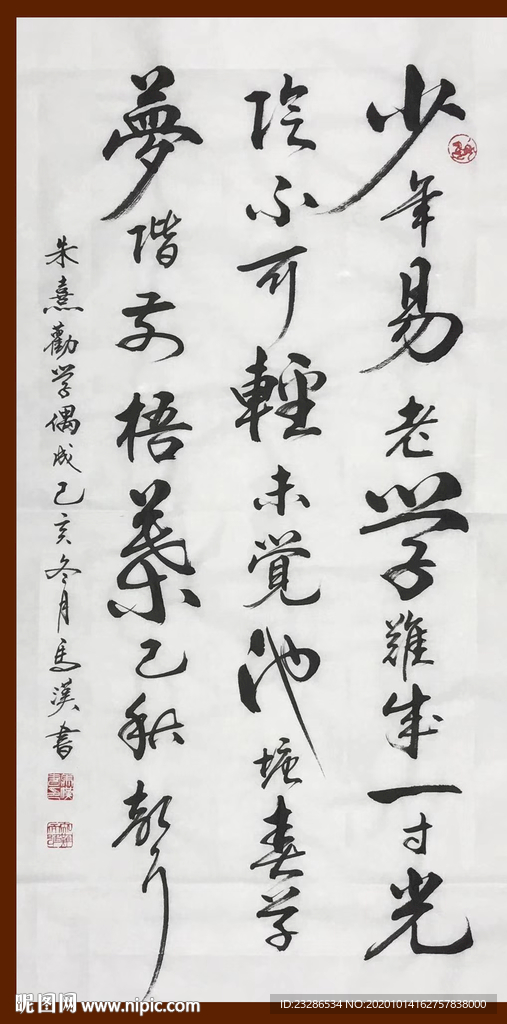 少年易老学難成一寸光
陰不可輕未覚池塘春草
夢階前梧葉已秋聲
朱熹勸学偶成己亥冬月馬漢書
昵图网 www.nipic.com
ID:23286534 NO:20201014162757838000